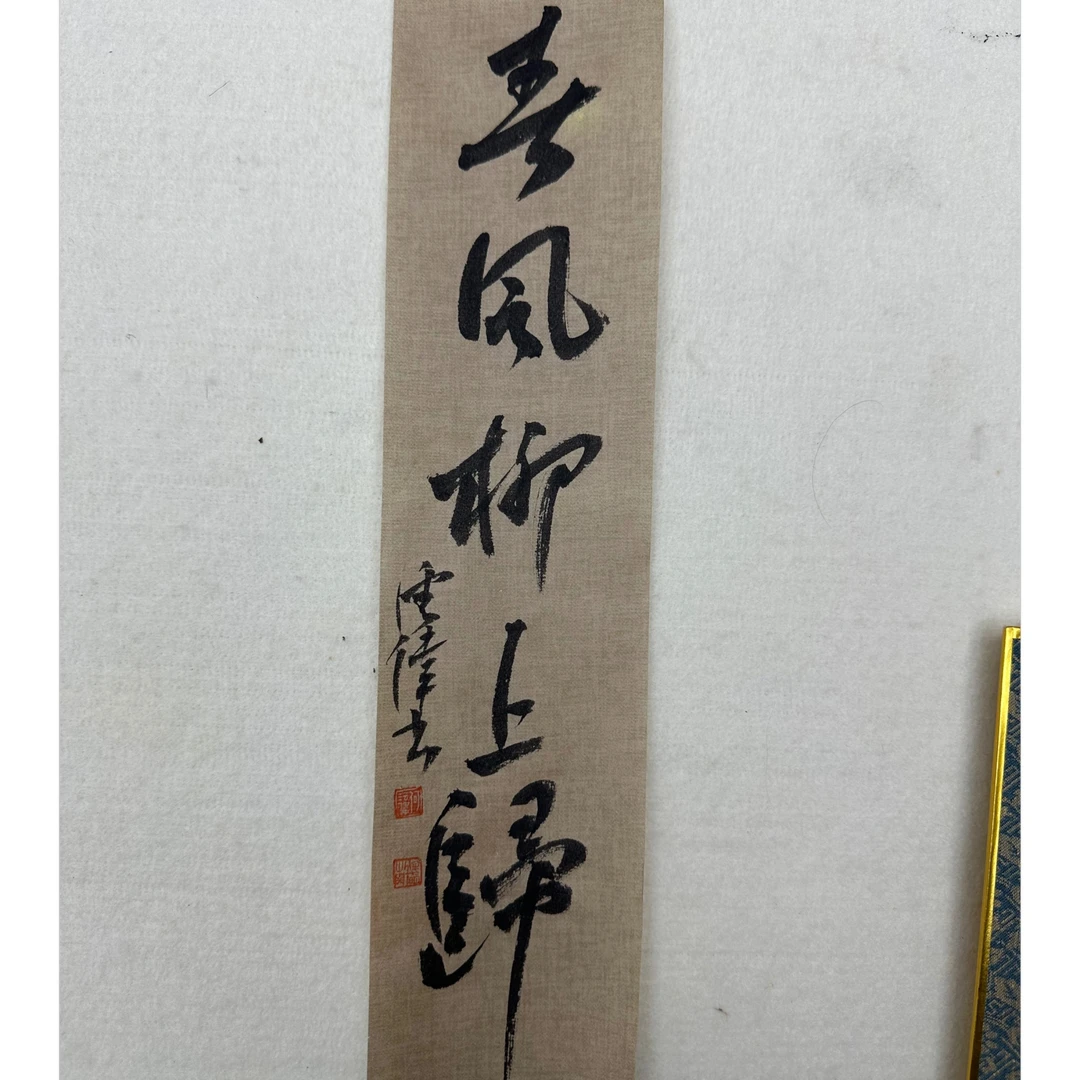 春風柳上歸